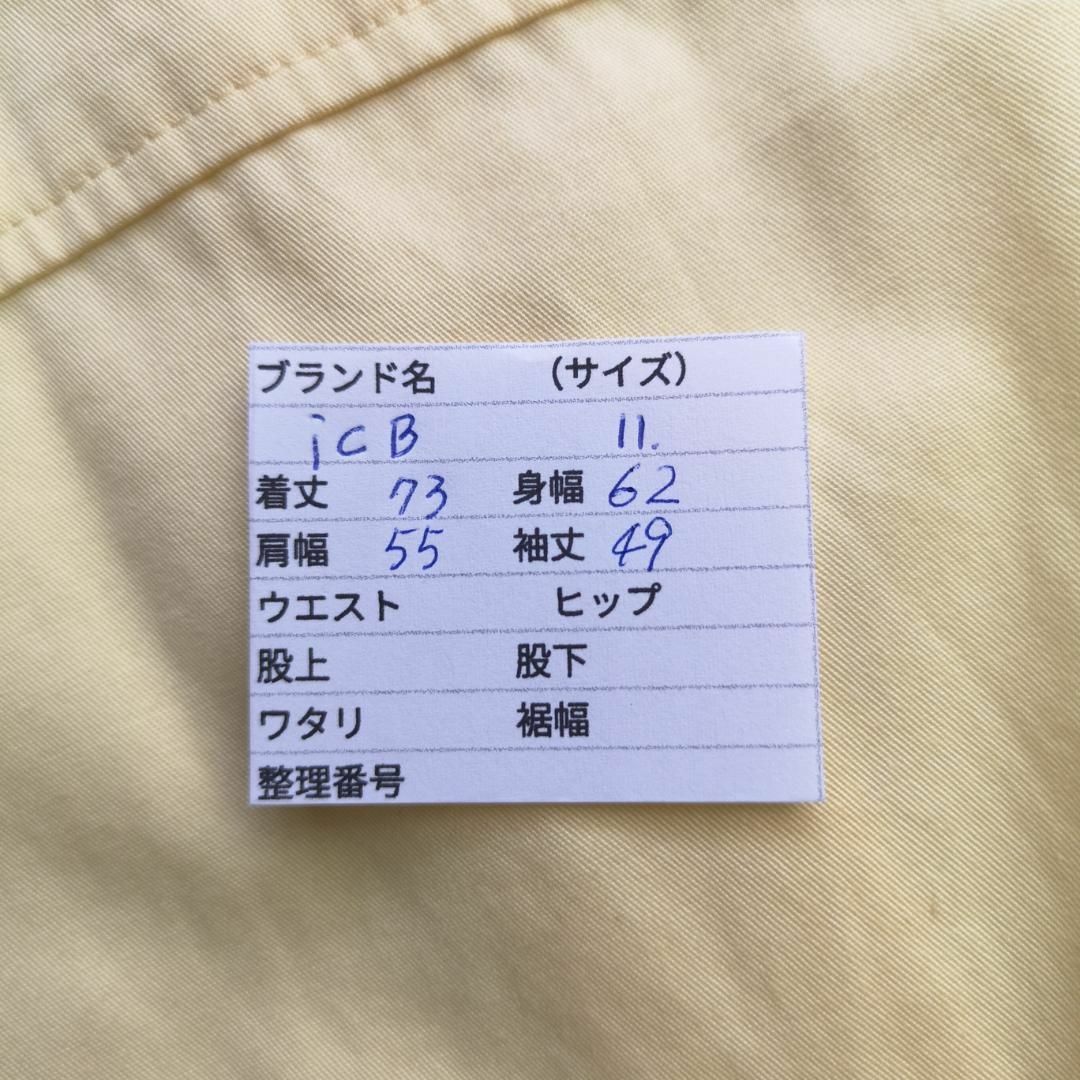 ブランド名 (サイズ)
jCB 11.
着丈 73 身幅 62
肩幅 55 袖丈 49
ウエスト ヒップ
股上 股下
ワタリ 裾幅
整理番号